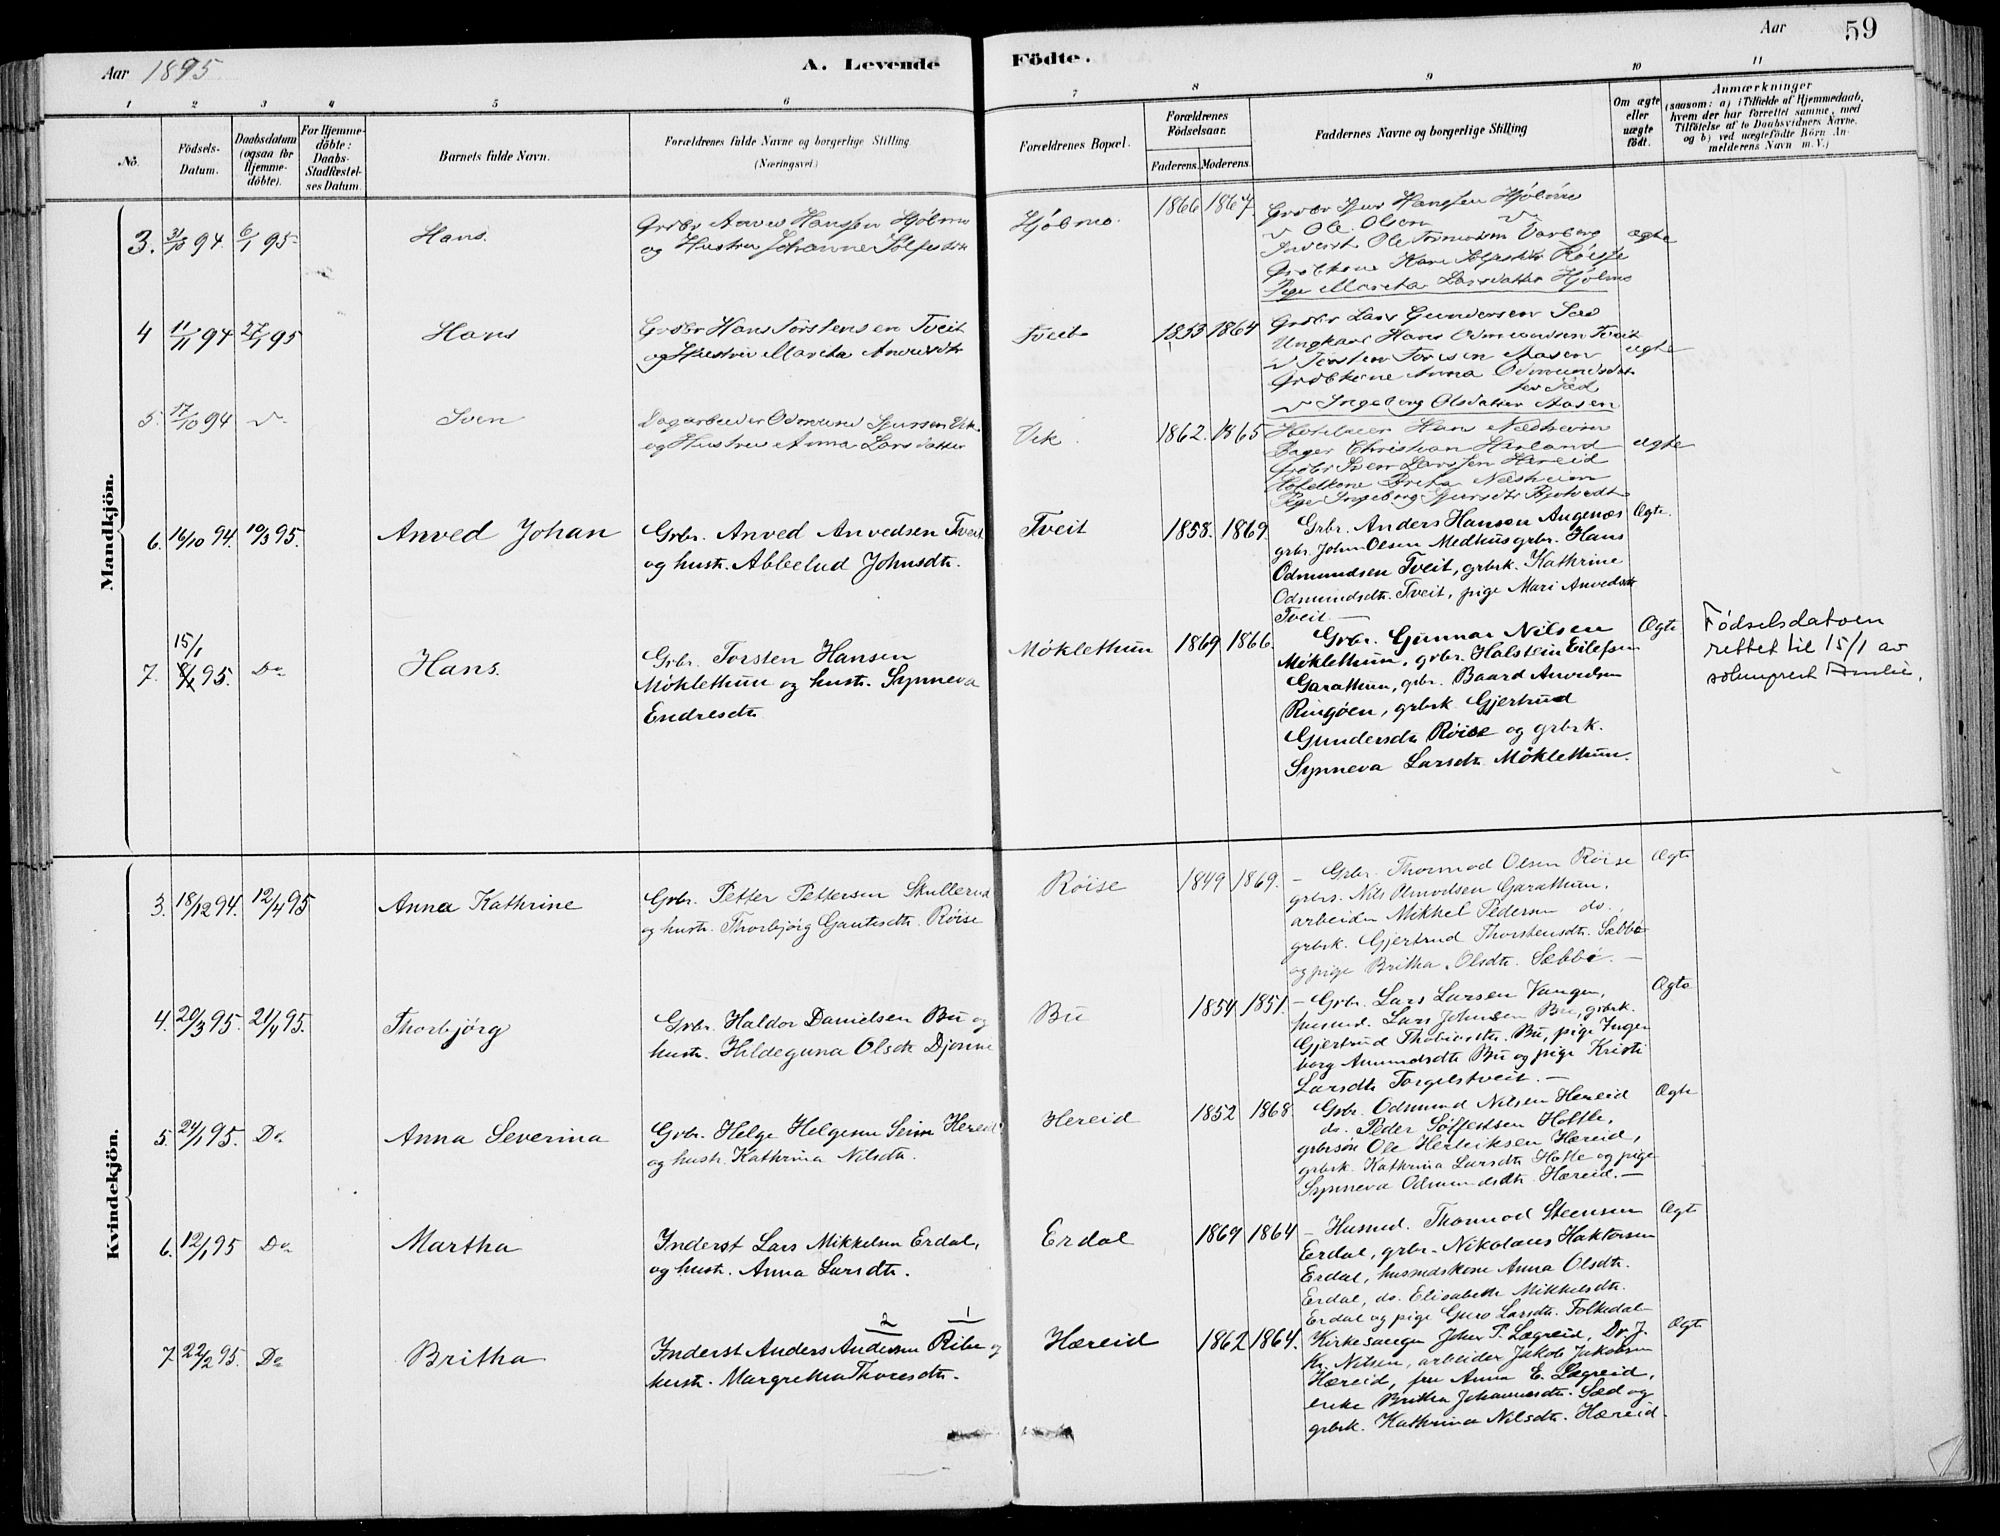 Aar 1895
A. Levende Födte.
Aar 59
1 2 3 4 5 6 7 8 9 10 11
No.
Födsels-
Datum.
Daabsdatum
(ogsaa for
Hjemme-
döbte).
For Hjemme-
döbte:
Daabs-
Stadfæstel-
ses Datum.
Barnets fulde Navn.
Forældrenes fulde Navne og borgerlige Stilling
(Næringsvei.)
Forældrenes Bopæl.
Forældrenes
Födselsaar.
Faderens. Moderens.
Faddernes Navne og borgerlige Stilling
Om ægte
eller
uægte
födt.
Anmærkninger
(saasom: a) i Tilfælde af Hjemmedaab,
hvem der har forrettet samme, med
Tilföielse af to Daabsvidners Navne,
og b) ved uægtefödte Börn An-
melderens Navn m. V.)
Mandkjön.
3. 31/10 94. 6/1 95
Hans.
Hanssen Hjölmo
og Hustru Johanne Solfestdtr
Hjölmo.
1866 1867.
Hanssen Hjölmo
v Ole Olsen v
Inderst Ole Tormodsen Varberg
Grdbkone Kari Solfestdtr Röisse
Pige Marita Larsdatter Hjölmo
ægte
4 11/11 94 27/1 95
Hans
Grdbr Hans Torstensen Tveit
og Hustru Marita
Tveit
1853 1864
Grdbr Lars Gundersen Sæd
Ungkarl Hans Odmundsen Tveit
v Torsten Aasen
Grdbkone Anna Odmundsdat
ter Sæd
v Ingeborg Olsdatter Aasen
ægte
5. 17/10 94 v
Sven
Dagarbeider Odmund Sjursen Vik
og Hustru Anna Larsdatter
Vik.
1862. 1865
Hoteleier Hans Næsheim
Bager Christian Herland
Grdbr Sven Larssen Hereid
Hotelkone Brita Næsheim
Pige Ingeborg Sjursdtr
ægte
6. 16/10 94. 10/3 95.
Anved Johan
Grbr. Anved Anvedsen Tveit
og hustr. Abbelud Johnsdtr.
Tveit
1858. 1869.
Grbr. Anders Hansen Augenæs
grbr. John Olsen Medhus grbr. Hans
Odmundsen Tveit, grbrk. Kathrine
Odmundsdtr. Tveit, pige Mari Anvedsdtr
Tveit. —
Ægte.
15/1
7. 8/1 95. Do
Hans.
Grbr. Torsten Hansen
Møklethun og hustr. Synneva
Endresdtr
Møklethun
1869 1866.
Grbr. Gunnar Nilsen
Møklethun, grbr. Halstein Eilefsen
Garathun, grbr. Baard Anvedsen
Ringøen, grbrk. Gjertrud
Gundersdtr Røise og grbrk.
Synneva Larsdtr. Møklethun.
Ægte
Fødselsdatoen
rettet til 15/1 av
sokneprest
Kvindekjön.
3. 18/12 94. 12/4 95
Anna Kathrine
Grbr. Petter Pettersen Skullerud
og hustr. Thorbjørg Gautesdtr. Røise
Røise
1849 1869.
— Grbr. Thormod Olsen Røise
grbrs. Nils Garathun.
arbeider Mikkel Pedersen do.,
grbrk. Gjertrud Thorstensdtr. Sæbbø
og pige Britha Olsdtr. Sæbbø. —
Ægte
4. 20/3 95. 21/4 95.
Thorbjörg
Grbr. Haldor Danielsen Bu og
hustr. Hildeguna Olsdtr Djonne
Bu
1854 1851.
— Grbr. Lars Larsen Vangen,
husmd. Lars Johnsen Bu, grbrk.
Gjertrud Thobiasdtr. Bu, pige Inge-
borg Amundsdtr Bu og pige Kristi
Larsdtr Torgelstveit. —
Ægte
5. 24/1 95. Do
Anna Severina
Grbr. Helge Helgesen Seim Hereid
og hustr. Kathrina Nilsdtr.
Hereid
1852 1868.
Grbr. Odmund Nilsen Hereid
do. Peder Sølfestsen Hofle,
grbrsøn Ole Henriksen Hæreid,
grbrk. Kathrina Larsdtr Hofle og pige
Synneva Odmundsdtr. Hæreid. —
Ægte
6. 12/1 95 Do
Martha
Inderst Lars Mikkelsen Erdal,
og hustr. Anna Larsdtr.
Erdal
1869 1864
— Husmd. Thormod Steensen
Erdal, grbr. Nikolaus Haktorsen
Erdal, husmdskone Anna Olsdtr.
Erdal, do. Elisabeth Mikkelsdtr.
Erdal og pige Guro Larsdtr. Folkedal
Ægte
2 1
7. 22/2 95. Do
Britha
Inderst Anders Andersen Ribe og
hustr. Margretha Thoresdtr.
Hæreid
1862 1864.
Kirkesanger John P. Lægreid, Do J.
Kr. Nilsen, arbeider Jakob Jakobsen
Hæreid, fru Anna E. Lægreid,
enke Britha Johannesdtr. Sæd og
grbrk. Kathrina Nilsdtr. Hæreid.
Ægte